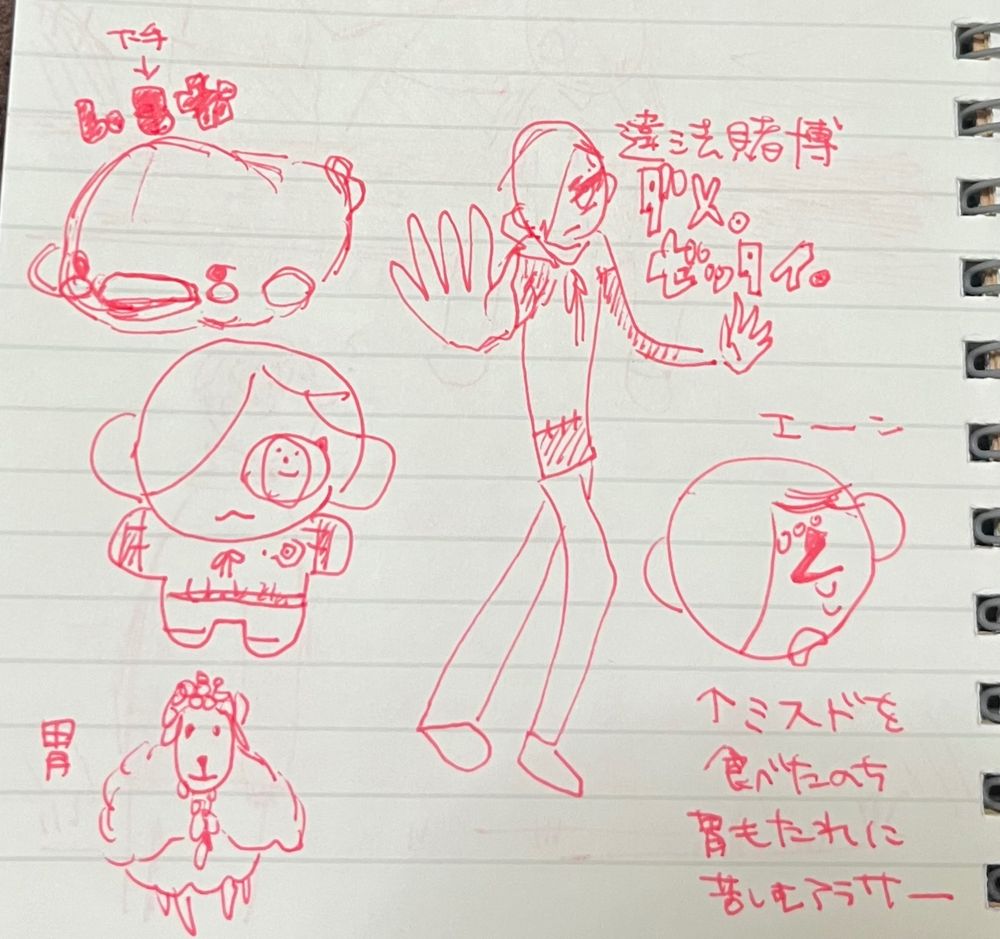 下手
違法賭博
ダメ。
ゼッタイ。
エーン
胃
↑ミスドを
食べたのち
胃もたれに
苦しむアラサー